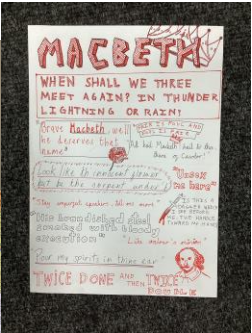 MACBETH
WHEN SHALL WE THREE
MEET AGAIN? IN THUNDER
LIGHTNING OR RAIN!
"Brave Macbeth, well
he deserves that
name"
FAIR IS FOUL AND
FOUL IS FAIR
"All hail Macbeth hail to thee
Thane of Cawdor!"
Look like th' innocent flower
but be the serpent under't
"Unsex
me here"
"Stay imperfect speakers, tell me more"
IS THIS A
DAGGER WHICH
I SEE BEFORE
ME, THE HANDLE
TOWARD MY HAND
"His brandished steel
smoked with bloody
execution"
"Like valour's minion"
Pour my spirits in thine ear
TWICE DONE AND THEN TWICE
DOUBLE